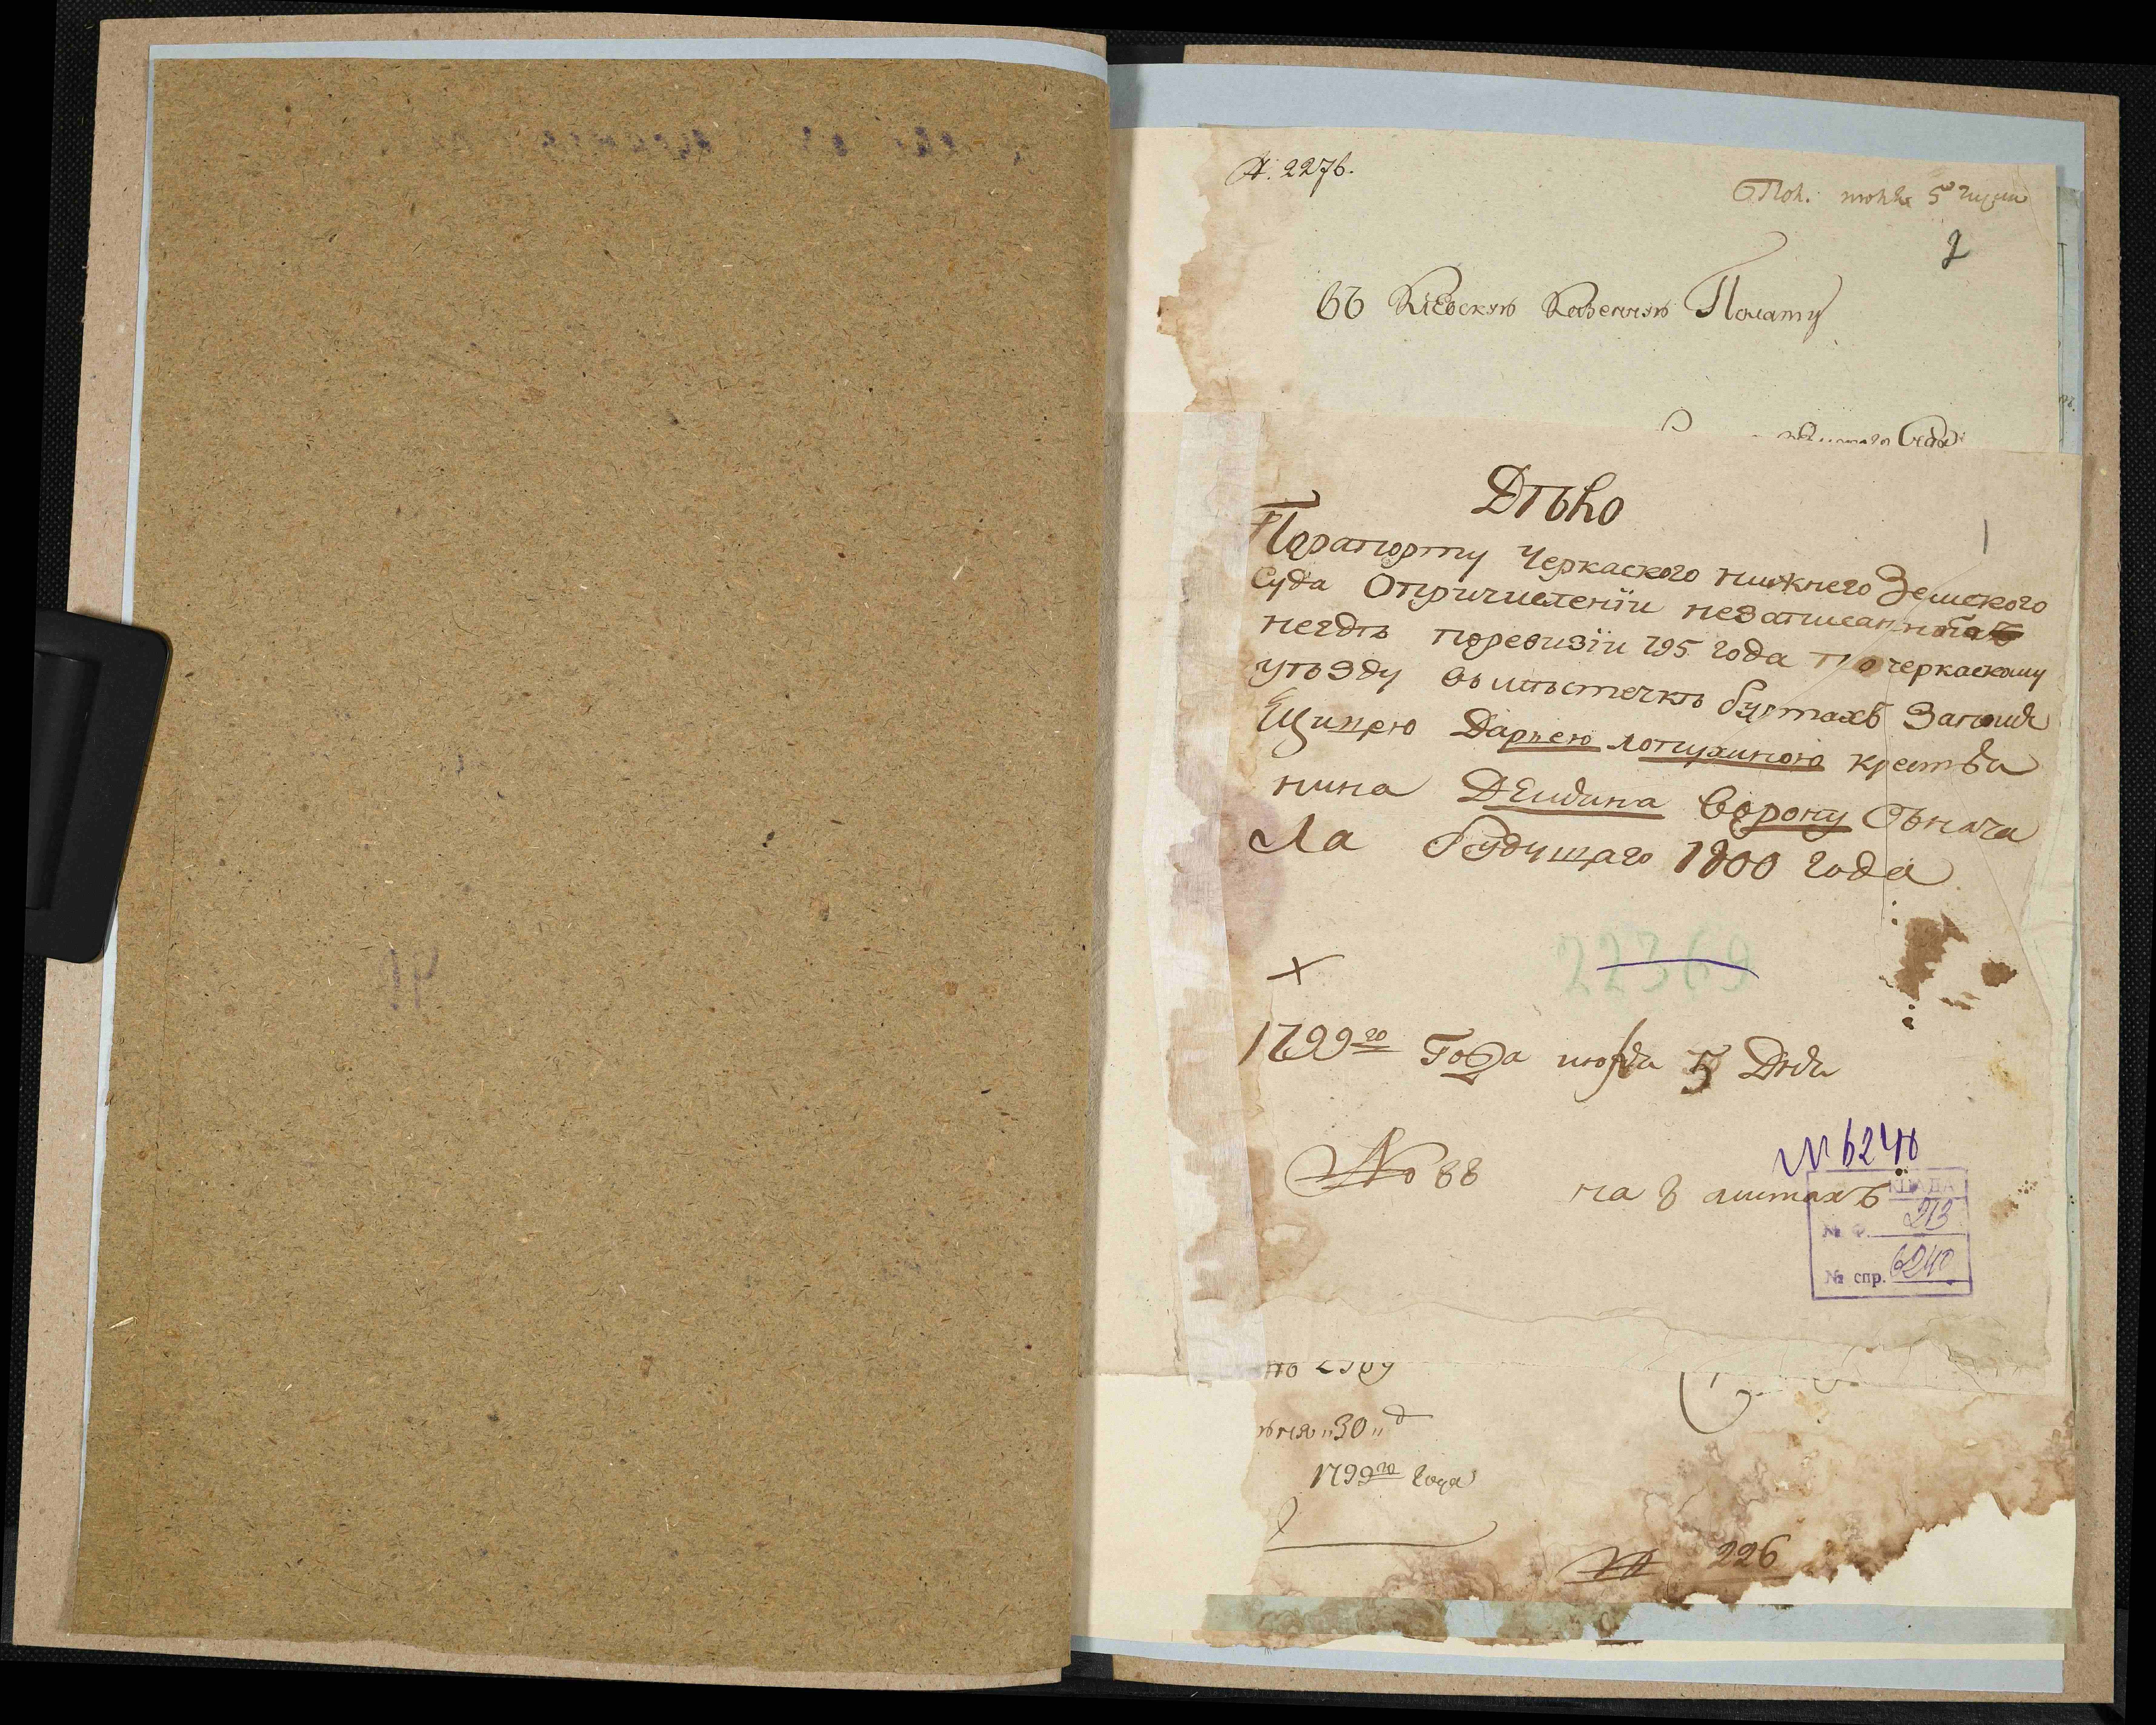 А. 2276.
Пол. июля 5 1799
2
Въ Киевскую Казенную Полату
Суда
Дѣло
1
По рапорту Черкаского нижнего Земского
Суда О причисленіи незаписанного
негдѣ по ревизіи 795 года по черкаскому
уѣзду въ мѣстечкѣ буртахъ Запоме
щицею Дарьею лопухиною крестья
нина Демяна Ворону Сънача
ла будущаго 1800 года
22369
1799го Года июля 5 Дня
№ 88
на 8 листахъ
№ 6240
ЦДІА
№ Ф. 213
№ спр. 6240
№ 2969
июня 30 д
1799го года
№ 226